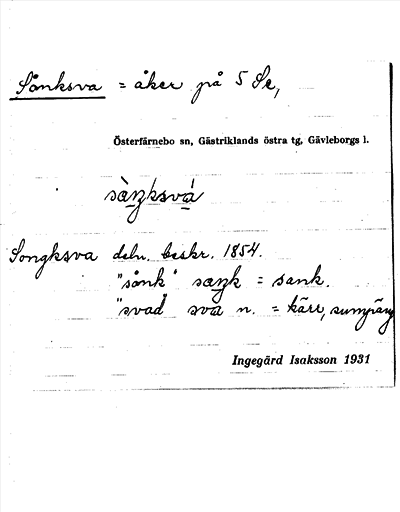 Sånksva = åker på 5 Se,
Österfärnebo sn, Gästriklands östra tg, Gävleborgs l.
sàŋksvá
Songksva deln. beskr. 1854.
"sånk" saŋk = sank.
"svad" sva n. = kärr, sumpäng
Ingegärd Isaksson 1931